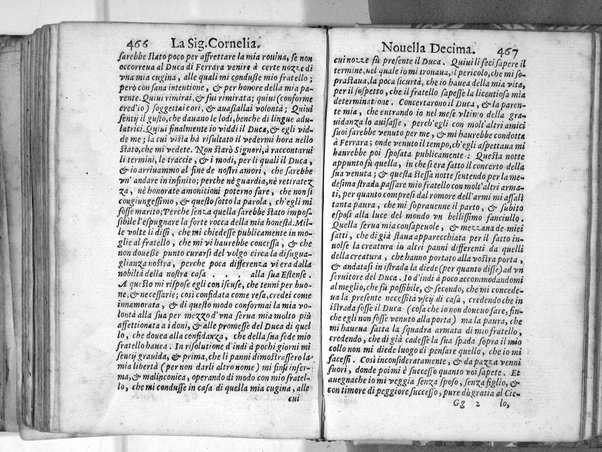 466 La Sig. Cornelia.
sarebbe stato poco per affrettare la mia rouina, se non
occorreua al Duca di Ferrara venire à certe nozze di
vna mia cugina, alle quali mi condusse mio fratello;
però con sana intentione, & per honore della mia pa-
rente. Quiui rimirai, & fui rimirata; quiui (conforme
cred'io) soggettai cori, & auassallai volontà; Quiui
sentij il gusto, che dauano le lodi, benche di lingue adu-
latrici. Quiui finalmente io viddi il Duca, & egli vid-
de me; la cui vista hà risultato il vedermi hora nello
stato, che mi vedete. Non starò Signori, à raccontarui
li termini, le traccie, & i modi, per li quali il Duca,
& io arriuammo al fine de nostri amori, che sarebbe
vn' andare in infinito; perche nè guardia, nè ritiratez
za, nè honorate amonitioni poterno fare, che non si
congiungessimo, & questo sotto la parola, ch'egli mi
fosse marito; Perche senza quella sarebbe stato impos-
sibile l'espugnare la forte rocca della mia honestà. Mil-
le volte li dissi, che mi chiedesse publicamente in mo-
glie al fratello, che mi vi haurebbe concessa, & che
non douesse punto curarsi del volgo circa la disugua-
glianza nostra, perche poca differenza vi era dalla
nobiltà della nostra casa . . . . . alla sua Estense.
A questo mi rispose egli con iscuse, che tenni per buo-
ne, & necessarie; così confidata come resa, credei come
innamorata, & di questo modo conformai la mia vo-
lontà alla sua per mezzo d'vna serua mia molto più
affettionata a i doni, & alle promesse del Duca di quel
lo, che doueua alla confidanza, che della sua fede mio
fratello haueua. In risolutione d'indi à pochi giorni mi
sentij grauida, & prima, che li panni dimostrassero la
mia libertà (per non darli altro nome) mi finsi infer-
ma, & malinconica, operando di modo con mio fratel-
lo, che mi condusse in casa di quella mia cugina, alle
cui
Nouella Decima. 467
cui nozze fù presente il Duca. Quiui li feci sapere il
termine, nel quale io mi tronaua, il pericolo, che mi so-
prastaua, la poca sicurtà, che io haueua della mia vita,
per il sospetto, che il fratello sapesse la licentiosa mia
determinatione. Concertarono il Duca, & la paren-
te mia, che entrando io nel mese vltimo della gra-
uidanza lo auisasse, perch'egli con molt'altri amici
suoi sarebbe venuto per me, & mi haurebbe condotta
à Ferrara; onde venuto il tempo, ch'egli aspettaua mi
haurebbe poi sposata publicamente: Questa notte
appunto fù quella, in che si era fatto il concerto della
sua venuta; & questa stessa notte sentendo per la me-
desima strada passare mio fratello con molt'altri arma-
ti, per quanto compresi dal romore dell'armi mi assalì
tanta paura, che mi soprauenne il parto, & subito
esposi alla luce del mondo vn bellissimo fanciullo.
Quella serua mia consapeuole, & mezzana de miei
fatti, che di già staua apparecchiata per il fatto in-
uolse la creatura in altri panni differenti da quelli
della creatura, che hanno portato alla vostra porta,
& andatasi in istrada la diede (per quanto disse) ad vn
seruitore del Duca. Io d'indi à poco accommodandomi
al meglio, che fù possibile, & secondo, che mi concede-
ua la presente necessità vscij di casa, credendo che in
istrada fosse il Duca (cosa che io non doueuo fare, fin-
che egli non fosse venuto alla porta) ma la paura, che
mi haueua fatta la squadra armata di mio fratello,
credendo, che di già cadesse la sua spada sopra il mio
collo non mi diede luogo di pensare quello, che io mi
facessi. Così inconsideratamente, & da pazza venni
fuori, donde poi mi è successo quanto voi sapete. Et
auegnache io mi veggia senza sposo, senza figlio, &
con timore di peggiore successo, pure dò gratia al Cie-
Gg 2 lo,